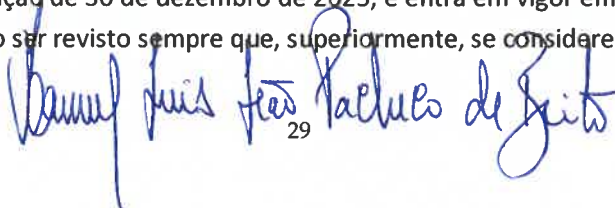 ção de 30 de dezembro de 2023, e entra em vigor em
o ser revisto sempre que, superiormente, se considere
Samuel Luis Leão Pacheco de Brito
29